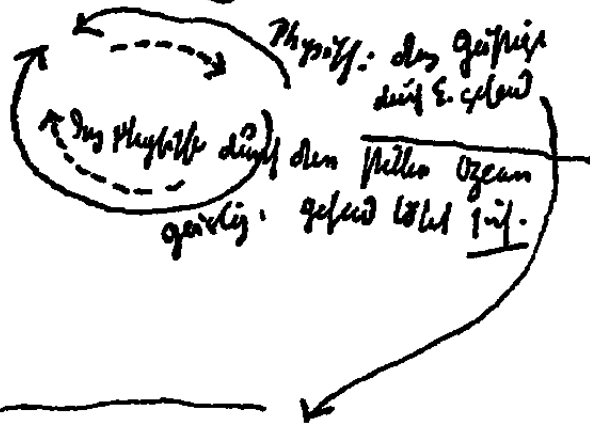 Physisch: das Geistige
durch E. gehend
das Physische durch den stillen Ozean
geistig: gehend löset sich.